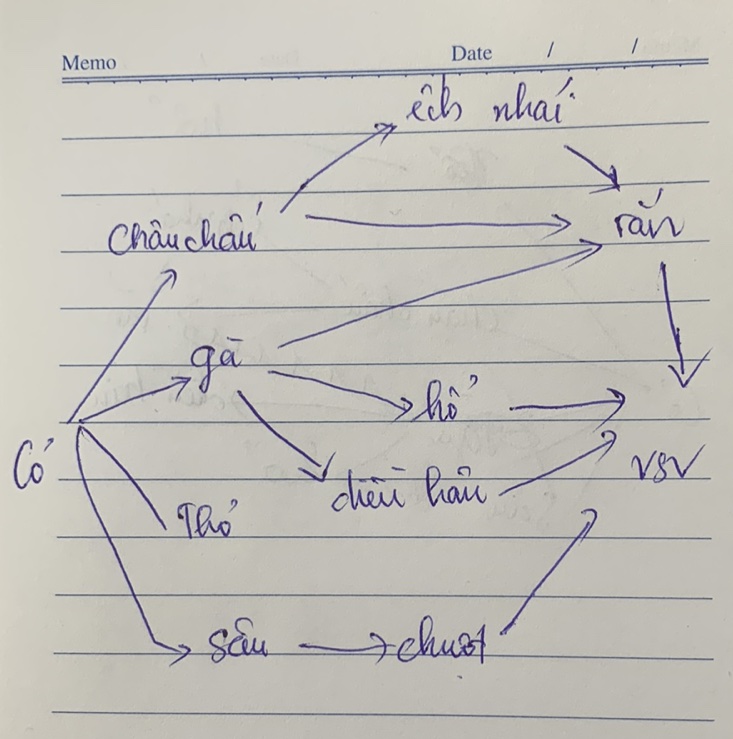 Memo Date / /
ếch nhái
Châu chấu rắn
gà
hổ
Cỏ diều hâu VSV
Thỏ
sâu chuột